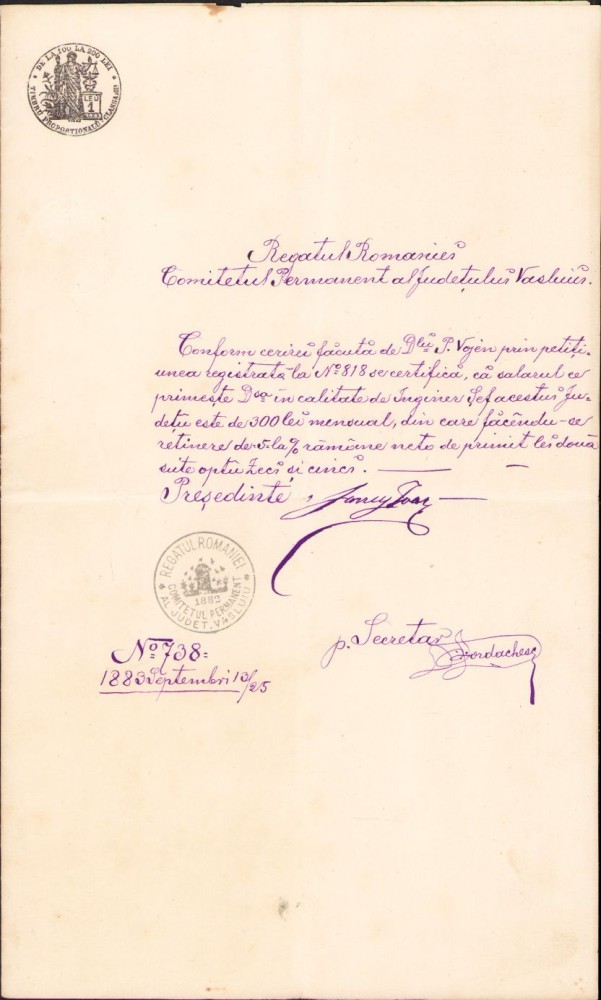 DE LA 100 LA 200 LEI
LEU
1
TIMBRU PROPORTIONALU
Regatul Romaniei
Comitetul Permanent al Judeţului Vasluiŭ.
Conform cererei făcută de Dlu P. Vojen prin petiţi-
unea registrată la No 818 se certifică, că salarul ce
primeşte Dsa in calitate de Inginer Şef acestui Ju-
deţu este de 300 lei mensual, din care făcêndu-se
retinere de 5 la % rămâne neto de primit lei două
sute optu zeci şi cinci.
Preşedinte,
REGATUL ROMANIEI
1882
COMITETUL PERMANENT
AL JUDET. VASLUIU
p. Secretar
Iordachescu
No 738:
1883 Septembri 13/25